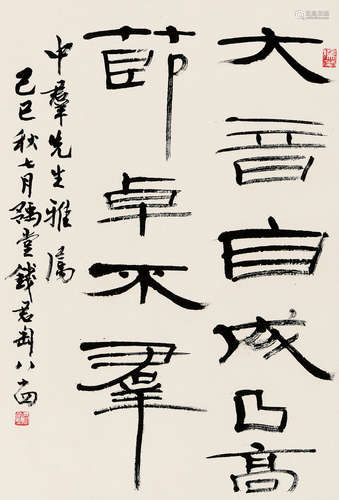 大音自成曲高
節卓不羣
中羣先生雅屬
己巳秋七月豫堂錢君匋八十四